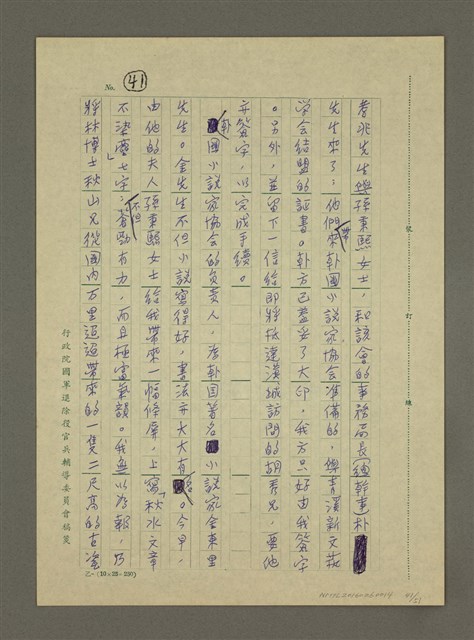 No. 41
孝兆先生與孫秉熙女士,和該會的事務局長(總幹事)朴
先生來了:他們帶來韓國小說家協會準備的,與青溪新文藝
學會結盟的証書。韓方已蓋妥了大印,我方只好由我簽字
。另外,並留下一信給即將抵達漢城訪問的胡秀兄,要他
亦簽字,以完成手續。
韓國小說家協會的負責人,為韓國著名小說家金東里
先生。金先生不但小說寫得好,書法亦大大有名。今早,
由他的夫人孫秉熙女士給我帶來一幅條屏,上寫「秋水文章
不染塵」七字:不但蒼勁有力,而且極富氣韻。我無以為報,乃
將林博士秋山兄從國內万里迢迢帶來的一隻二尺高的古瓷
行政院國軍退除役官兵輔導委員會稿箋
乙-(10×25=250)
裝 訂 線
41/51